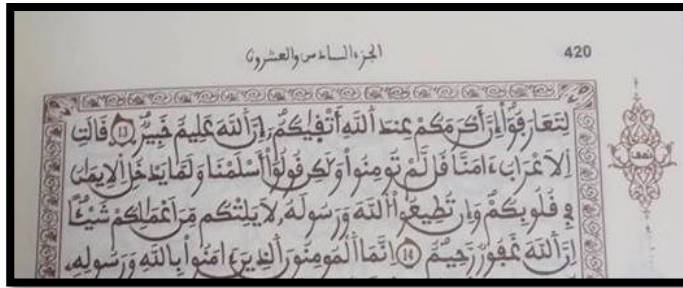 الجزء السادس والعشرون 420
لِتَعَارَفُوٓاْ إِنَّ أَكْرَمَكُمْ عِندَ اَللَّهِ أَتْقَيٰكُمُۥٓ إِنَّ اَللَّهَ عَلِيمٌ خَبِيرٌ 13 قَالَتِ
نصف
اِلَاعْرَابُ ءَامَنَّا قُل لَّمْ تُومِنُواْ وَلَٰكِن قُولُوٓاْ أَسْلَمْنَا وَلَمَّا يَدْخُلِ اِلِايمَٰنُ
فِے قُلُوبِكُمْ وَإِن تُطِيعُواْ اُللَّهَ وَرَسُولَهُۥ لَا يَلِتْكُم مِّنَ اَعْمَٰلِكُمْ شَيْـٔاً
اِنَّ اَللَّهَ غَفُورٌ رَّحِيمٌ 14 اِنَّمَا اَلْمُومِنُونَ اَلذِينَ ءَامَنُواْ بِاللَّهِ وَرَسُولِهِۦ